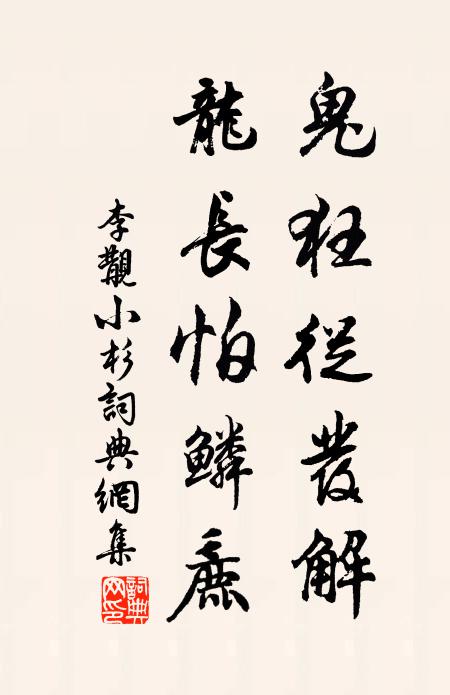 鬼狂從發解
龍長怕鱗
李覯小杉詞典網集
詞典网印